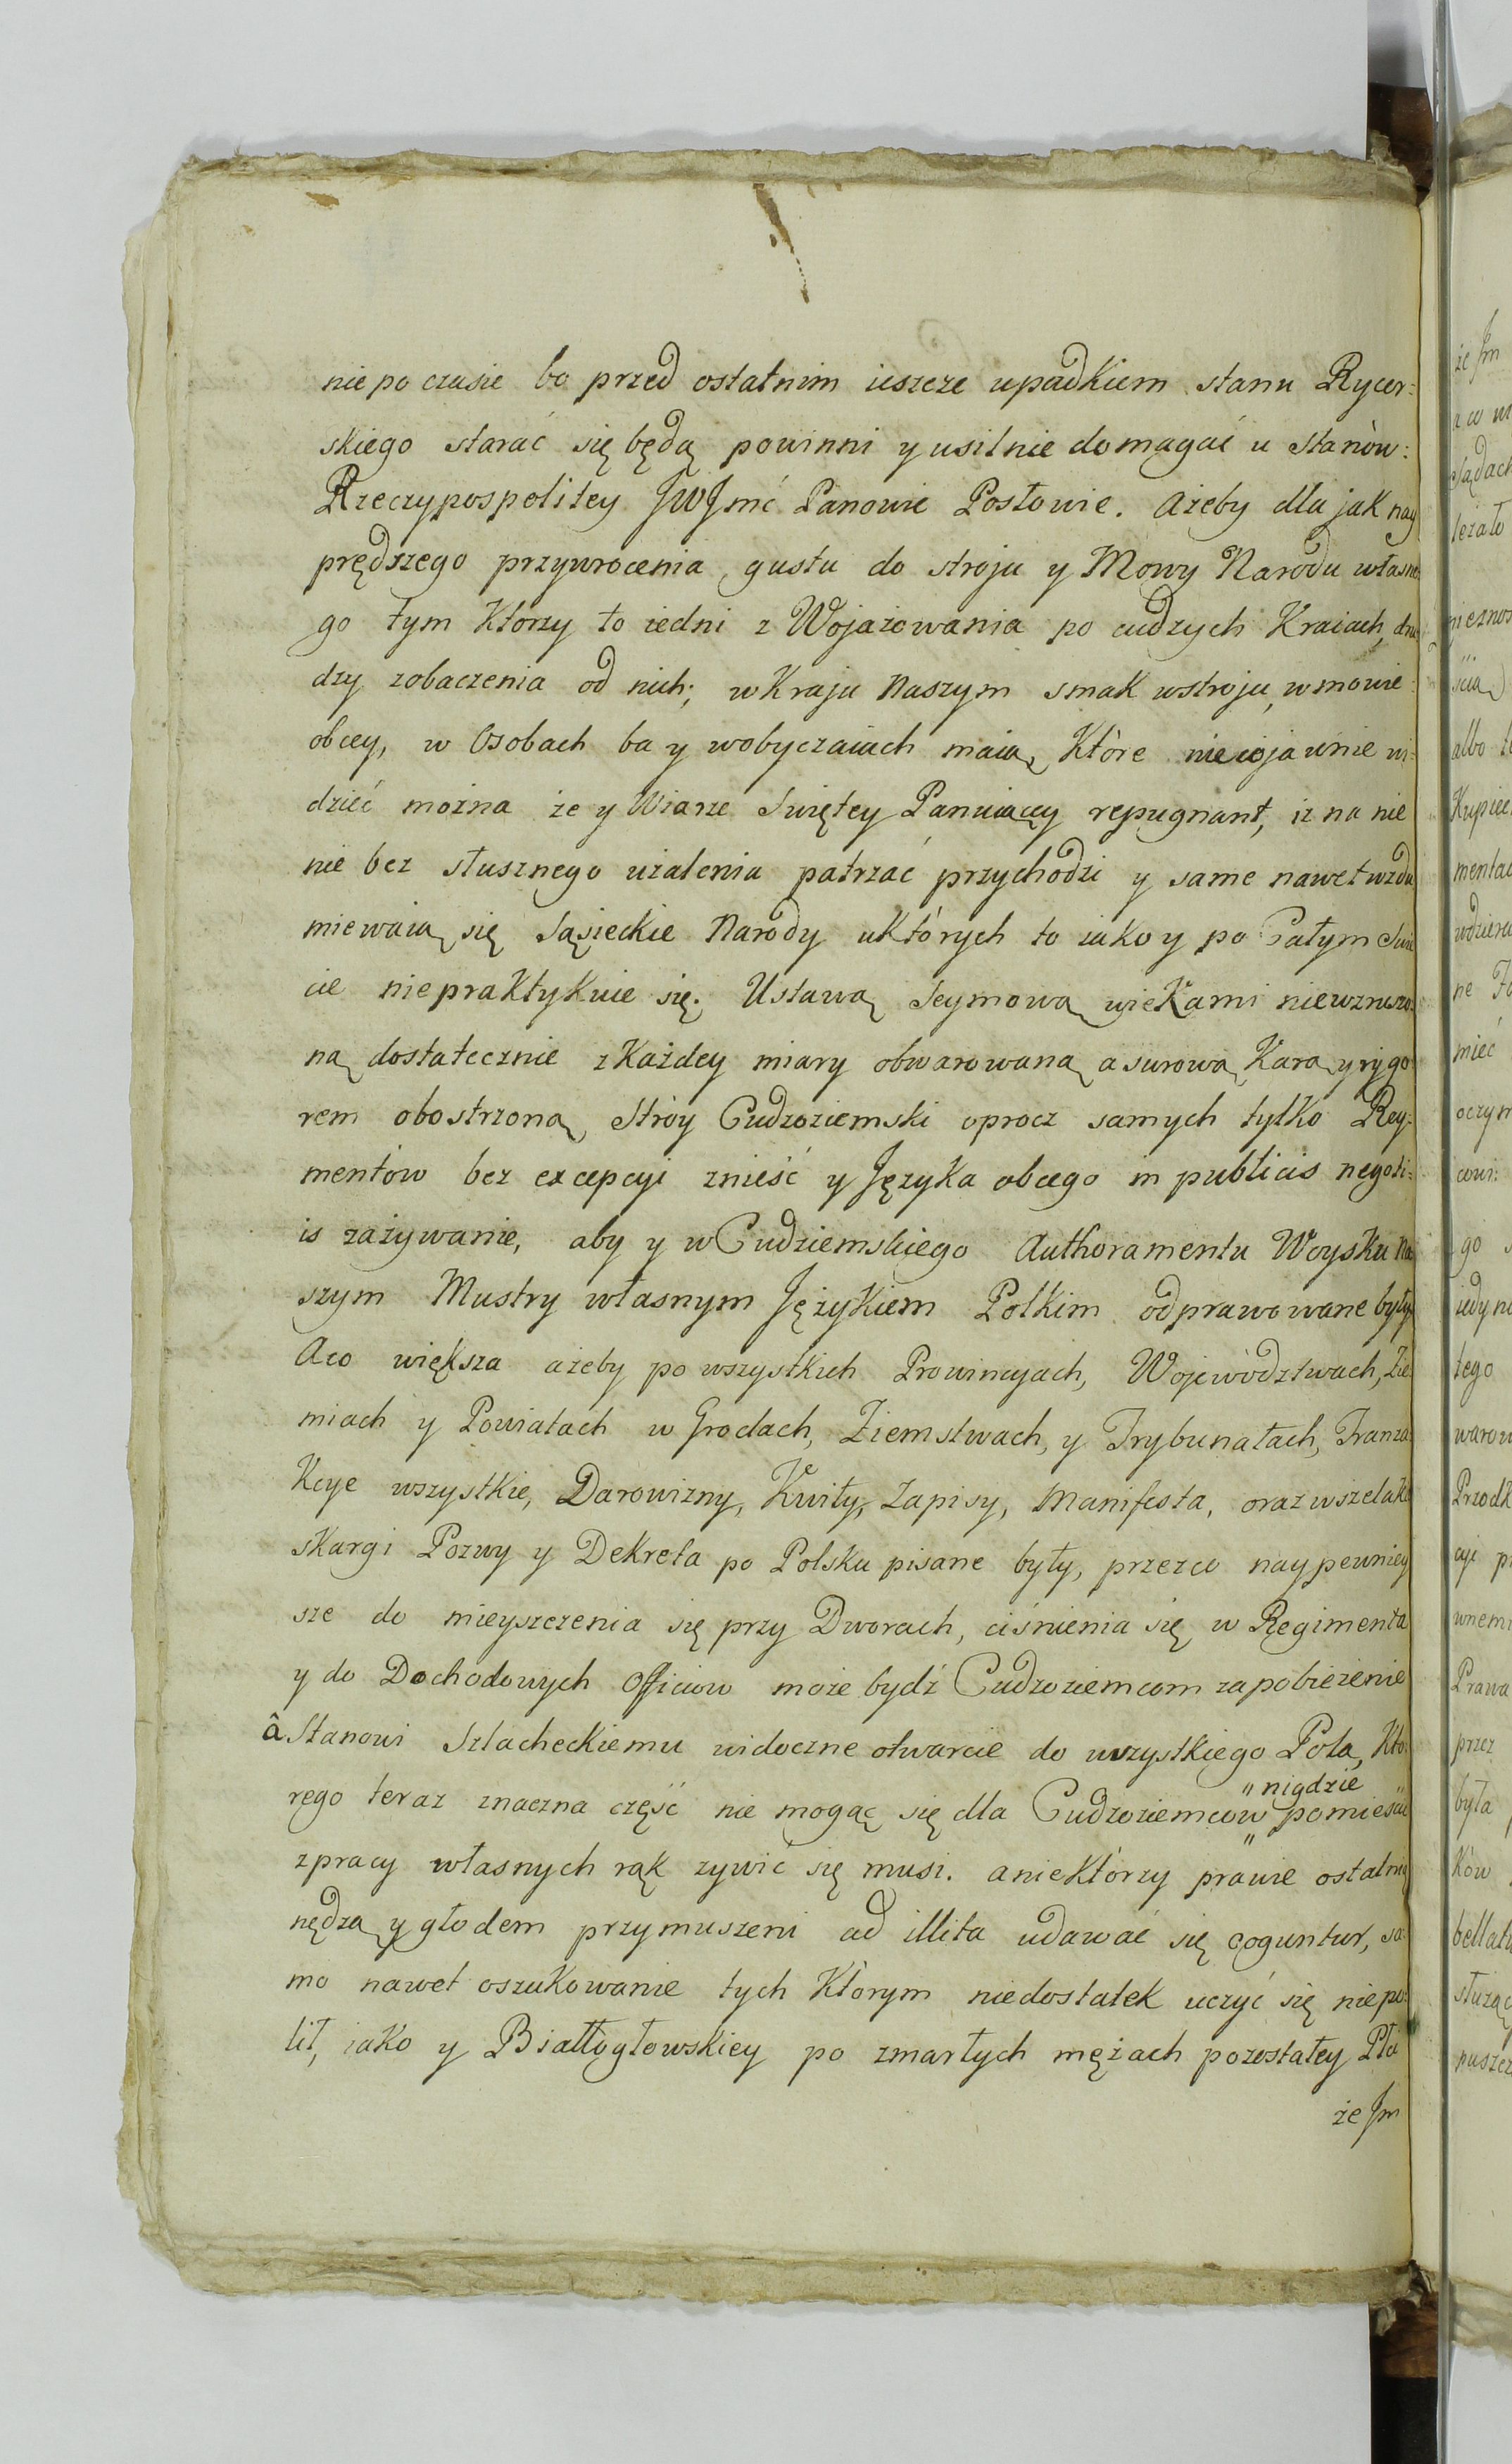 nie po czasie bo przed ostatnim ieszcze upadkiem stanu Rycer=
skiego starać się będą powinni y usilnie domagać u Stanów:
Rzeczypospolitey JWJmć Panowie Posłowie. Ażeby dla jak nay
prędszego przywrocenia gustu do stroju y Mowy Narodu własne
go tym Ktorzy to iedni z Wojażowania po cudzych Kraiach, dru
dzy zobaczenia od nich; w Kraju Naszym smak wstroju, wmowie
obcey, w Osobach ba y wobyczaiach maią, Które nie iawnie wi=
dzieć można że y Wiarze Swiętey Panuiącey repugnant, iż na nie
nie bez słusznego użalenia patrzać przychodzi y same nawet wzdu
miewaią się Sąsieckie Narody uKtórych to iako y po Całym Swie
cie niepraktykuie się. Ustawą Seymową wieKami niewzruszo=
ną dostatecznie zKażdey miary obwarowaną a surową Karą y rygo
rem obostrzoną, Strôy Cudzoziemski oprocz samych tylko Rey=
mentow bez excepcyi znieść y Języka obcego in publicis negoti=
is zażywanie, aby y w Cudziemskiego Authoramentu Woysku Na
szym Mustry własnym Językiem Polkim odprawowane były
Aco większa ażeby po wszystkich Prowincyach, Wojewòdztwach, Zie
miach y Powiatach w Grodach, Ziemstwach, y Trybunałach, Tranza
Kcye wszystkie, Darowizny, Kwity, Zapisy, Manifesta, oraz wszelakie
sKargi Pozwy y DeKreta po Polsku pisane były, przezco naypewniey
sze do mieyszczenia się przy Dworach, ciśnienia się w Regimenta
y do Dochodowych Officiow może bydź Cudzoziemcom zapobieżenie
â Stanowi Szlacheckiemu widoczne otwarcie do wszystkiego Pola, Kto=
rego teraz znaczna część nie mogąc się dla Cudzoziemcow "nigdzie pomieścić
zpracy własnych rąk zywić się musi. a nieKtórzy prawie ostatnią
nędzą y głodem przymuszeni ad illita udawać się coguntur, sa=
mo nawet oszukowanie tych Ktorym niedostatek uczyć się niepo=
lił, iaKo y Białłogłowskiey po zmarłych mężach pozostałey Płci
że Jm